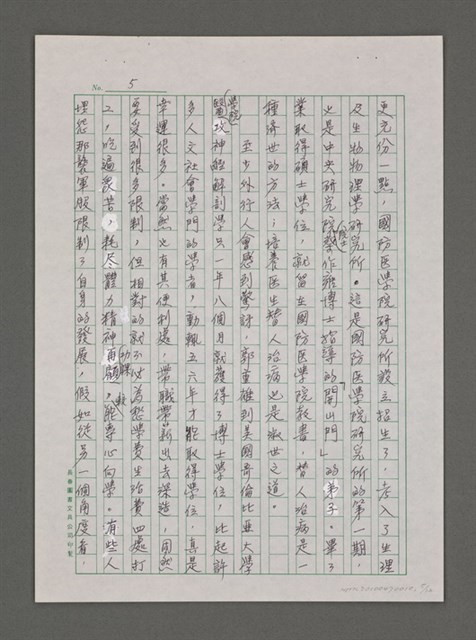 No. 5
更充份一點，國防医學院研究所設立招生了，考入了生理
及生物物理學研究所。這是國防医學院研究所的第一期，
也是中央研究院院士蔡作雍博士指導的「開山門」的弟子。畢了
業取得碩士學位，就留在國防医學院教書，替人治病是一
種濟世的方法；培養医生替人治病也是濟世之道。
至少外行人會感到驚訝，郭重雄到美國哥倫比亞大學
醫學院攻神經解剖學只一年八個月就獲得了博士學位，比起許
多人文社會學門的學者，動輒五六年才能取得學位，真是
幸運很多。當然也有其便利處，帶職帶薪出去深造，固然
要受到很多限制，但相對的就不必為愁學費生活費四處打
工，吃遍衆苦，耗尽體力精神兼顧功課，較能專心向學。有些人
埋怨那勞軍服限制了自身的發展，假如從另一個角度看，
長春圖書文具公司印製